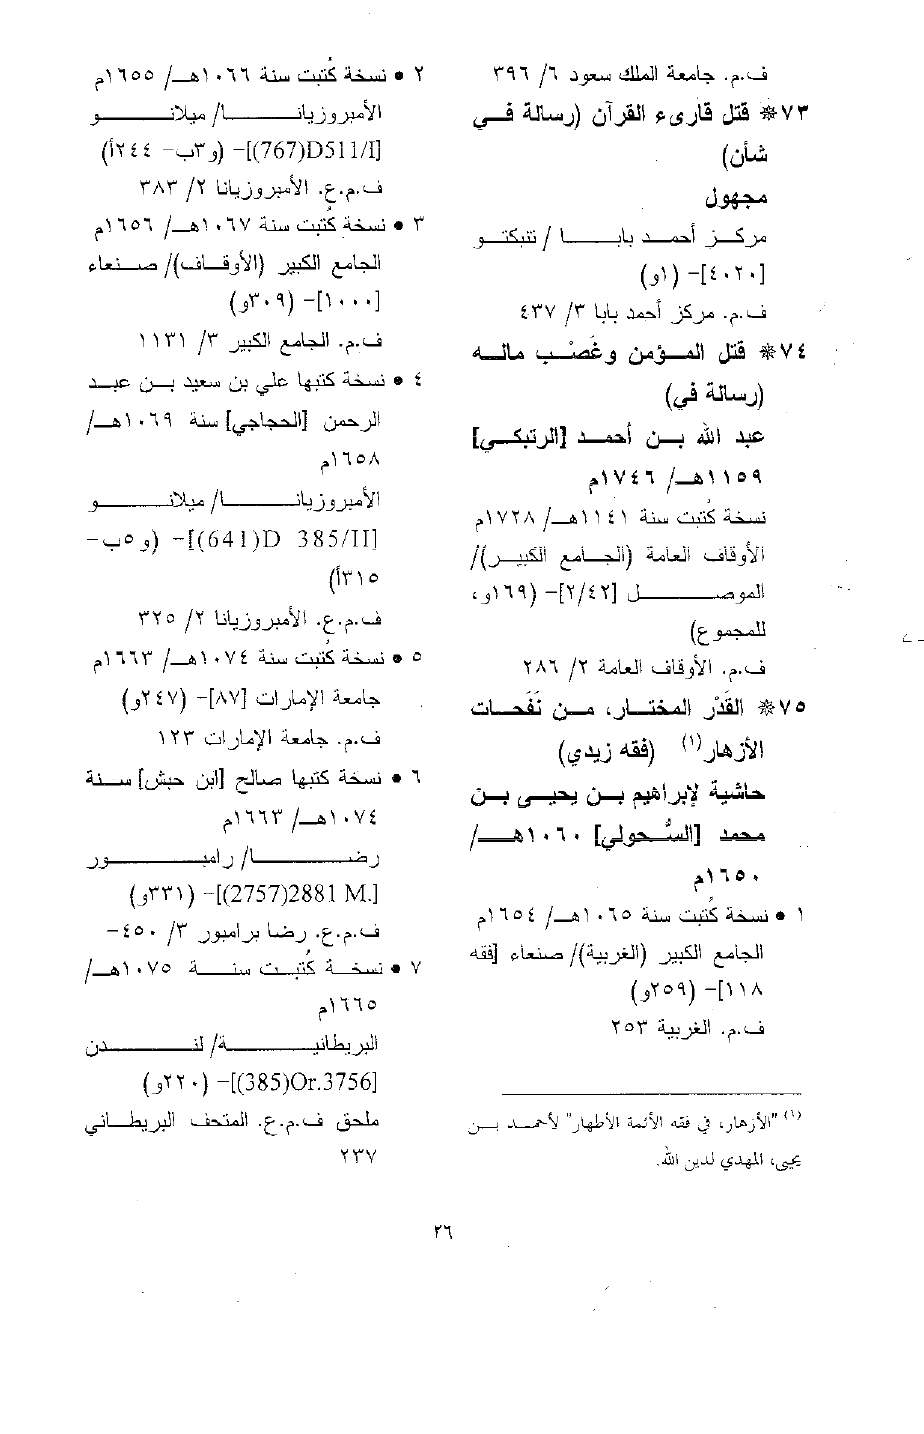 ف.م. جامعة الملك سعود ٦/ ٣٩٦
٧٣* قتل قارىء القرآن (رسالة فـي
شأن)
مجهول
مركـز أحمـد بابـــا / تنبكتـو
[٤٠٢٠]- (١و)
ف.م. مركز أحمد بابا ٣/ ٤٣٧
٧٤* قتل المـؤمن وغَصْـب مالـه
(رسالة في)
عبد الله بـن أحمـد [الرتبكـي]
١١٥٩هـ/ ١٧٤٦م
نسخة كُتبت سنة ١١٤١هـ/ ١٧٢٨م
الأوقاف العامة (الجـامع الكبيـر)/
الموصـــل [٢/٤٢]- (١٦٩و،
للمجموع)
ف.م. الأوقاف العامة ٢/ ٢٨٦
٧٥* القَدْر المختـار، مـن نَفَحـات
الأزهار(١) (فقه زيدي)
حاشية لإبراهيم بـن يحيـى بـن
محمد [السُّحولي] ١٠٦٠هــ/
١٦٥٠م
١ • نسخة كُتبت سنة ١٠٦٥هـ/ ١٦٥٤م
الجامع الكبير (الغربية)/ صنعاء [فقه
١١٨]- (٢٥٩و)
ف.م. الغربية ٢٥٣
(١) "الأزهار، في فقه الأئمة الأطهار" لأحمـد بـن
يحيى، المهدي لدين الله.
٢ • نسخة كُتبت سنة ١٠٦٦هـ/ ١٦٥٥م
الأمبروزيانـــا/ ميلانـــو
[D511/I(767)]- (و٣ب- ٢٤٤أ)
ف.م.ع. الأمبروزيانا ٢/ ٣٨٣
٣ • نسخة كُتبت سنة ١٠٦٧هـ/ ١٦٥٦م
الجامع الكبير (الأوقـاف)/ صـنعاء
[١٠٠٠]- (٣٠٩و)
ف.م. الجامع الكبير ٣/ ١١٣١
٤ • نسخة كتبها علي بن سعيد بـن عبـد
الرحمن [الحجاجي] سنة ١٠٦٩هـ/
١٦٥٨م
الأمبروزيانـــا/ ميلانـــو
[D 385/II(641)]- (و٥ب-
٣١٥أ)
ف.م.ع. الأمبروزيانا ٢/ ٣٢٥
٥ • نسخة كُتبت سنة ١٠٧٤هـ/ ١٦٦٣م
جامعة الإمارات [٨٧]- (٢٤٧و)
ف.م. جامعة الإمارات ١٢٣
٦ • نسخة كتبها صالح [ابن حبش] سـنة
١٠٧٤هـ/ ١٦٦٣م
رضـــا/ رامبـــور
[.M 2881(2757)]- (٣٣١و)
ف.م.ع. رضا برامبور ٣/ ٤٥٠-
٧ • نسخـة كُتبـت سنـة ١٠٧٥هـ/
١٦٦٥م
البريطانيـــة/ لنـــدن
[Or.3756(385)]- (٢٢٠و)
ملحق ف.م.ع. المتحف البريطـاني
٢٣٧
٢٦